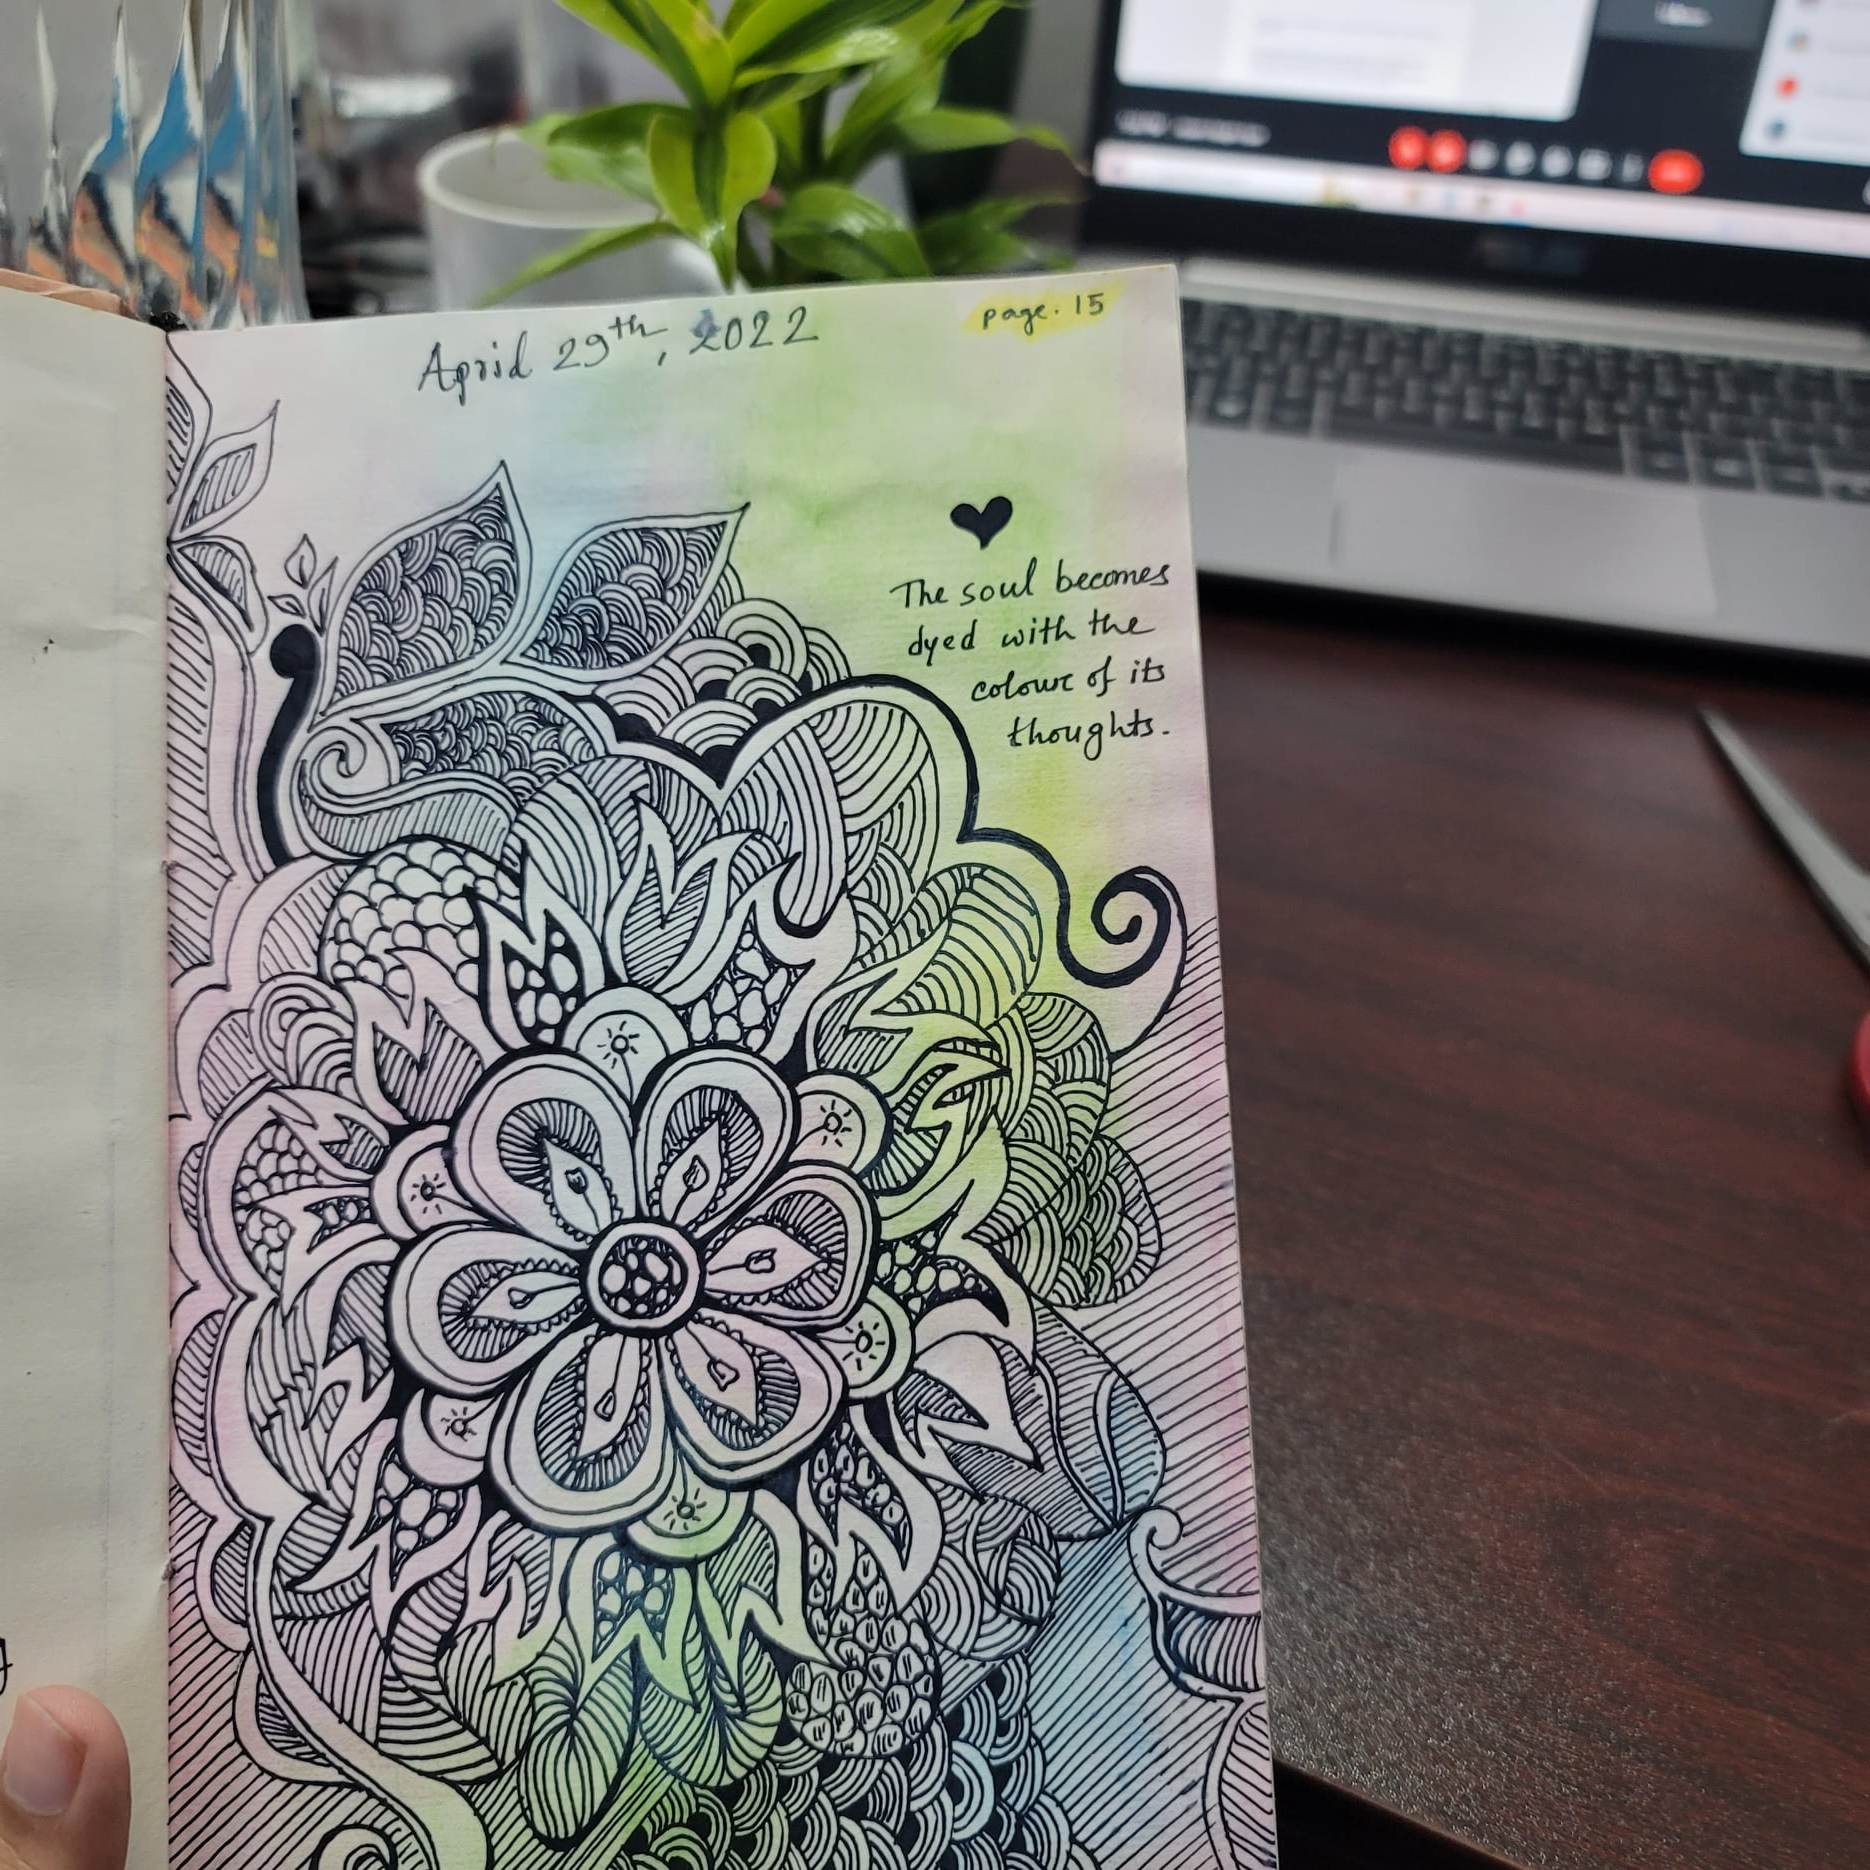 April 29th, 2022
page. 15
The soul becomes
dyed with the
colour of its
thoughts.